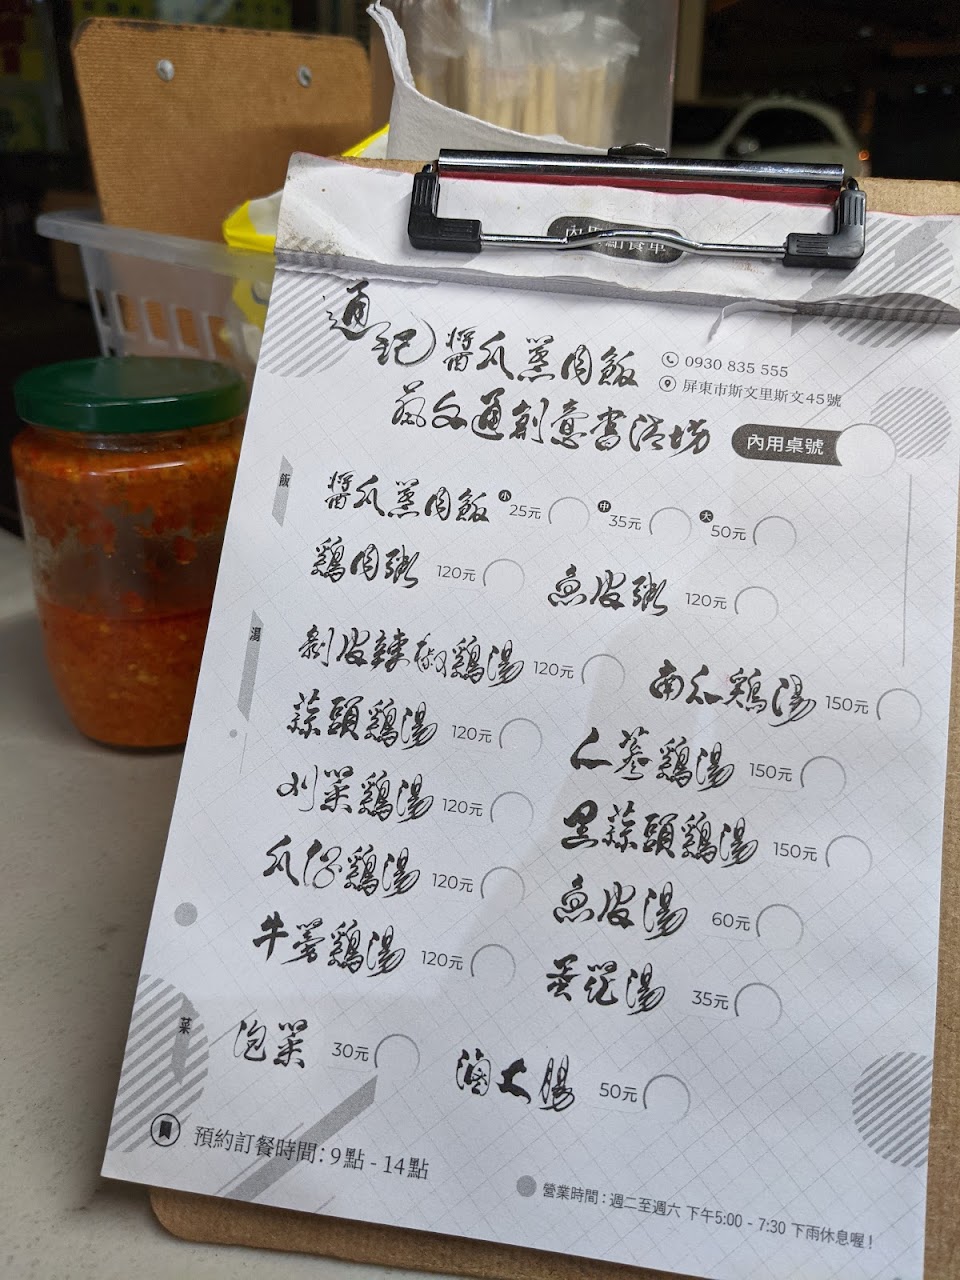 內用點餐單
通記醬瓜蒸肉飯
0930 835 555
屏東市斯文里斯文45號
蘇文通創意書法坊
內用桌號
飯
醬瓜蒸肉飯 小 25元 中 35元 大 50元
鷄肉粥 120元 魚皮粥 120元
湯
剝皮辣椒鷄湯 120元 南瓜鷄湯 150元
蒜頭鷄湯 120元 仁蔘鷄湯 150元
刈菜鷄湯 120元 黑蒜頭鷄湯 150元
瓜仔鷄湯 120元 魚皮湯 60元
牛蒡鷄湯 120元 湯 35元
菜
泡菜 30元 滷大腸 50元
預約訂餐時間：9點 - 14點
營業時間：週二至週六 下午5:00 - 7:30 下雨休息喔！